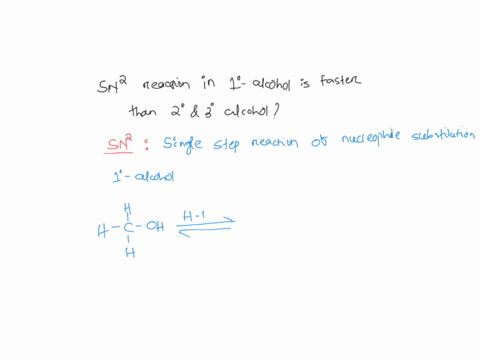 SN² reaction in 1°-alcohol is faster
than 2° & 3° alcohol?
SN² : Single step reaction of nucleophile substitution
1°-alcohol
H
H-C-OH H-I
H